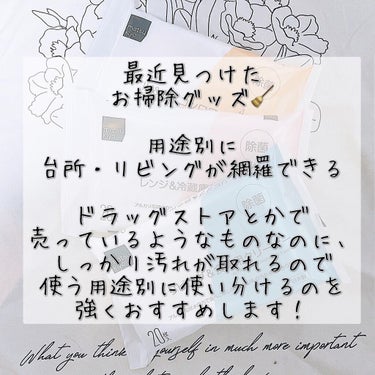 最近見つけた
お掃除グッズ🧹
用途別に
台所・リビングが網羅できる
ドラッグストアとかで
売っているようなものなのに、
しっかり汚れが取れるので
使う用途別に使い分けるのを
強くおすすめします!
除菌
除菌
レンジ&冷蔵庫
20枚
What you think yourself in much more important